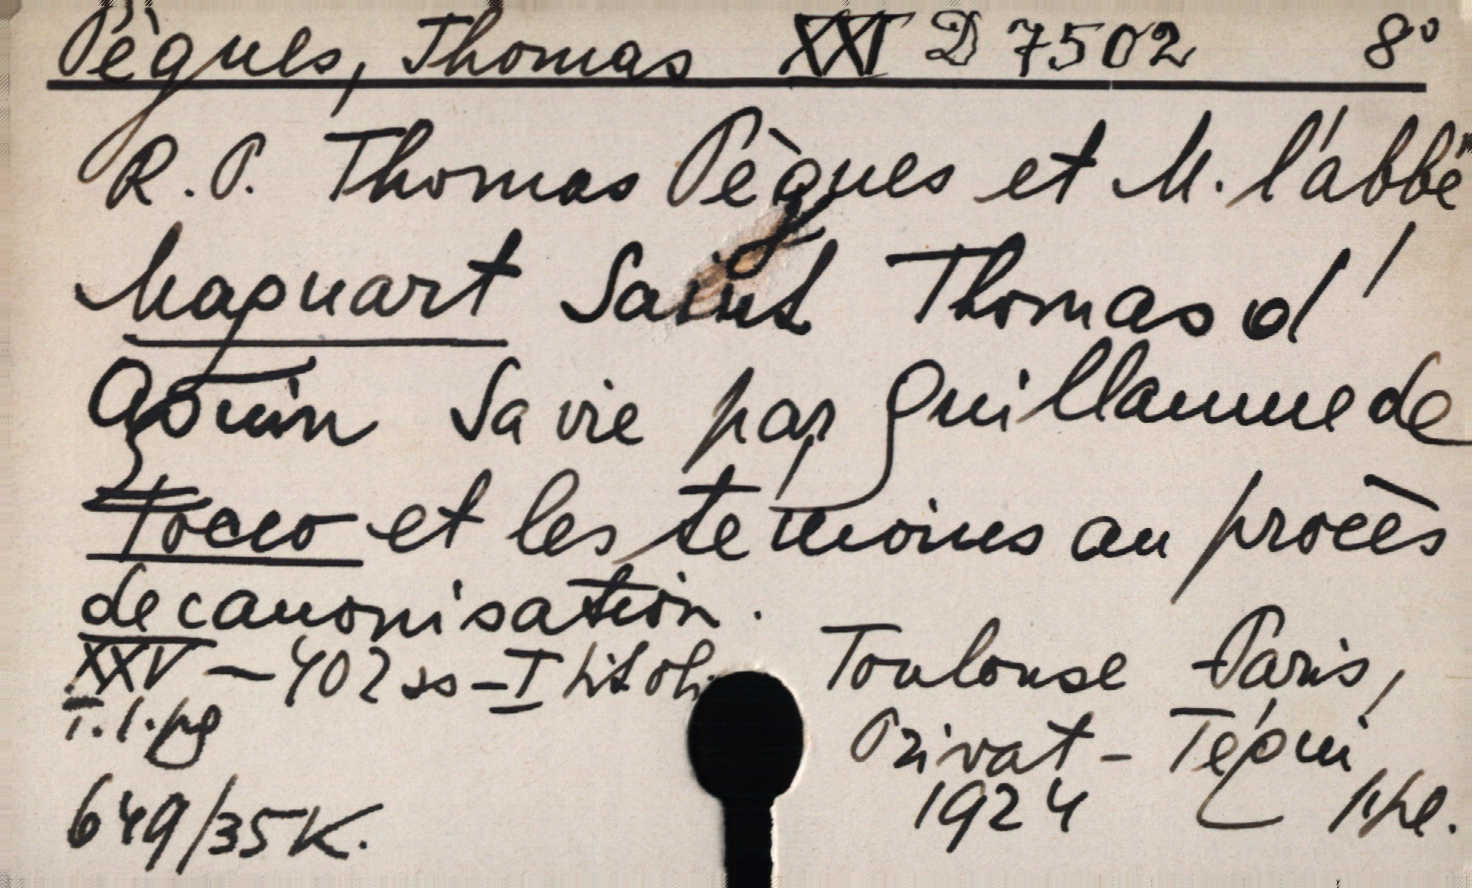 Pègues, Thomas XXI D 7502 8°
R. P. Thomas Pègues et M. l'abbé
Maquart Saint Thomas d'
Aquin Sa vie par Guillaume de
Tocco et les temoins au procès
de canonisation.
XXV – 402 ss – I tit oh. Toulouse Paris,
T. I. pg Privat – Téqui
649/35 K. 1924 1 pl.